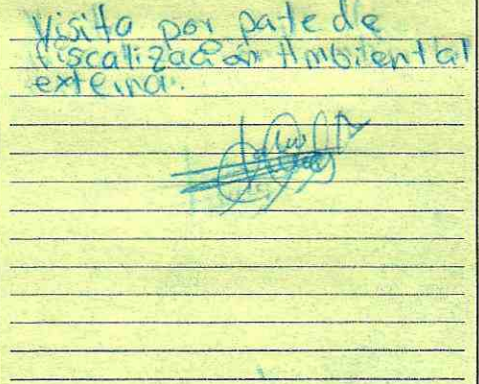 Visita por pate de
fiscalización Ambiental
externa.